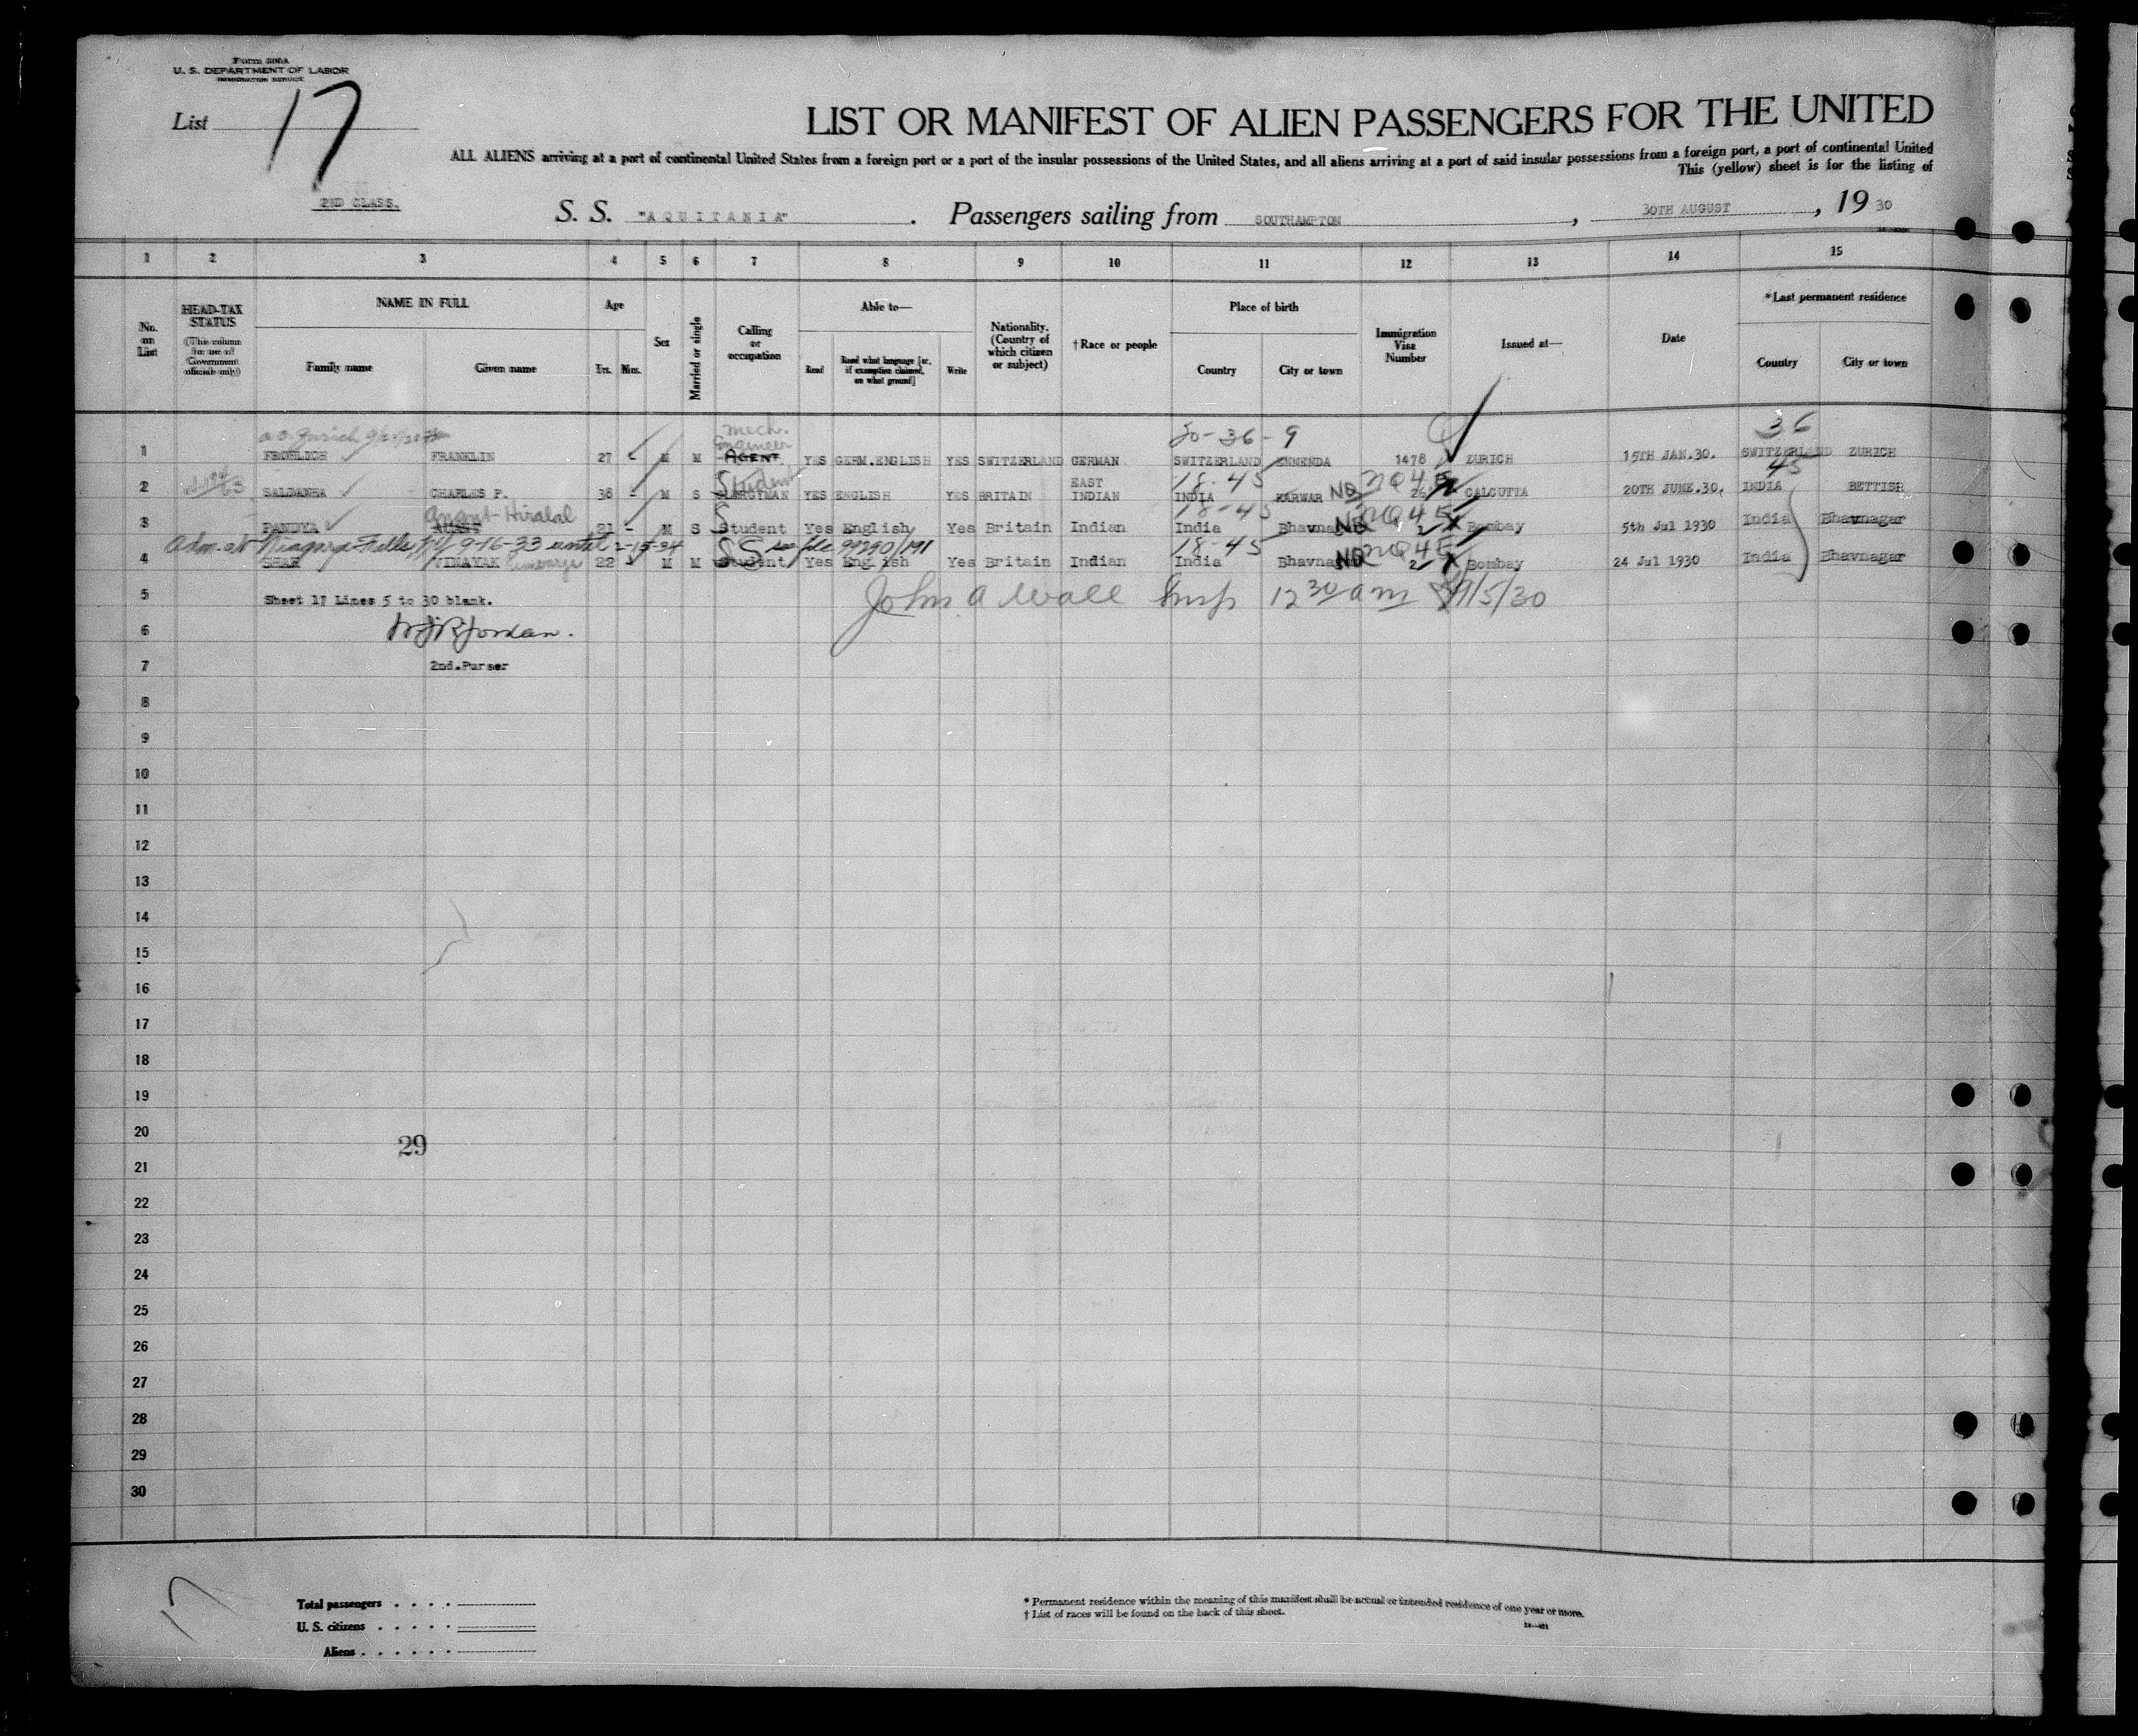 Form 500A
U. S. DEPARTMENT OF LABOR
IMMIGRATION SERVICE
List 17
LIST OR MANIFEST OF ALIEN PASSENGERS FOR THE UNITED
ALL ALIENS arriving at a port of continental United States from a foreign port or a port of the insular possessions of the United States, and all aliens arriving at a port of said insular possessions from a foreign port, a port of continental United
This (yellow) sheet is for the listing of
2ND CLASS.
S. S. "AQUITANIA". Passengers sailing from SOUTHAMPTON, 30TH AUGUST, 19 30
1 2 3 4 5 6 7 8 9 10 11 12 13 14 15
No. on List
HEAD-TAX STATUS (This column for use of Government officials only)
NAME IN FULL
Family name Given name
Age
Yrs. Mos.
Sex
Married or single
Calling or occupation
Able to—
Read Read what language [or, if exemption claimed, on what ground] Write
Nationality. (Country of which citizen or subject)
†Race or people
Place of birth
Country City or town
Immigration Visa Number
Issued at—
Date
*Last permanent residence
Country City or town
mech. Engineer 20-36-9 36
1 FROHLICH FRANKLIN 27 - M M AGENT YES GERM.ENGLISH YES SWITZERLAND GERMAN SWITZERLAND ENNENDA 1478 ZURICH 15TH JAN.30. SWITZERLAND ZURICH
Student 18-45 NQ4E 45
2 SALDANHA CHARLES P. 38 - M S CLERGYMAN YES ENGLISH YES BRITAIN EAST INDIAN INDIA KARWAR ND 26 CALCUTTA 20TH JUNE.30. INDIA BETTIAH
Anant-Hiralal S 18-45 NQ4E
3 PANDYA 21 - M S Student Yes English Yes Britain Indian India Bhavnagar Bombay 5th Jul 1930 India Bhavnagar
Adm. at Niagara Falls, N.Y. 9-16-33 until 2-15-34 SS see file 99290/191 18-45 NQ4E
4 SHAH VINAYAK 22 - M M Student Yes English Yes Britain Indian India Bhavnagar 2 Bombay 24 Jul 1930 India Bhavnagar
5 Sheet 17 Lines 5 to 30 blank. John A Wall Insp 12 30 am 9/5/30
6 Jordan.
7 2nd.Purser
8
9
10
11
12
13
14
15
16
17
18
19
20
29
21
22
23
24
25
26
27
28
29
30
17
Total passengers . . . .
U. S. citizens . . . . .
Aliens . . . . . .
* Permanent residence within the meaning of this manifest shall be actual or intended residence of one year or more.
† List of races will be found on the back of this sheet.